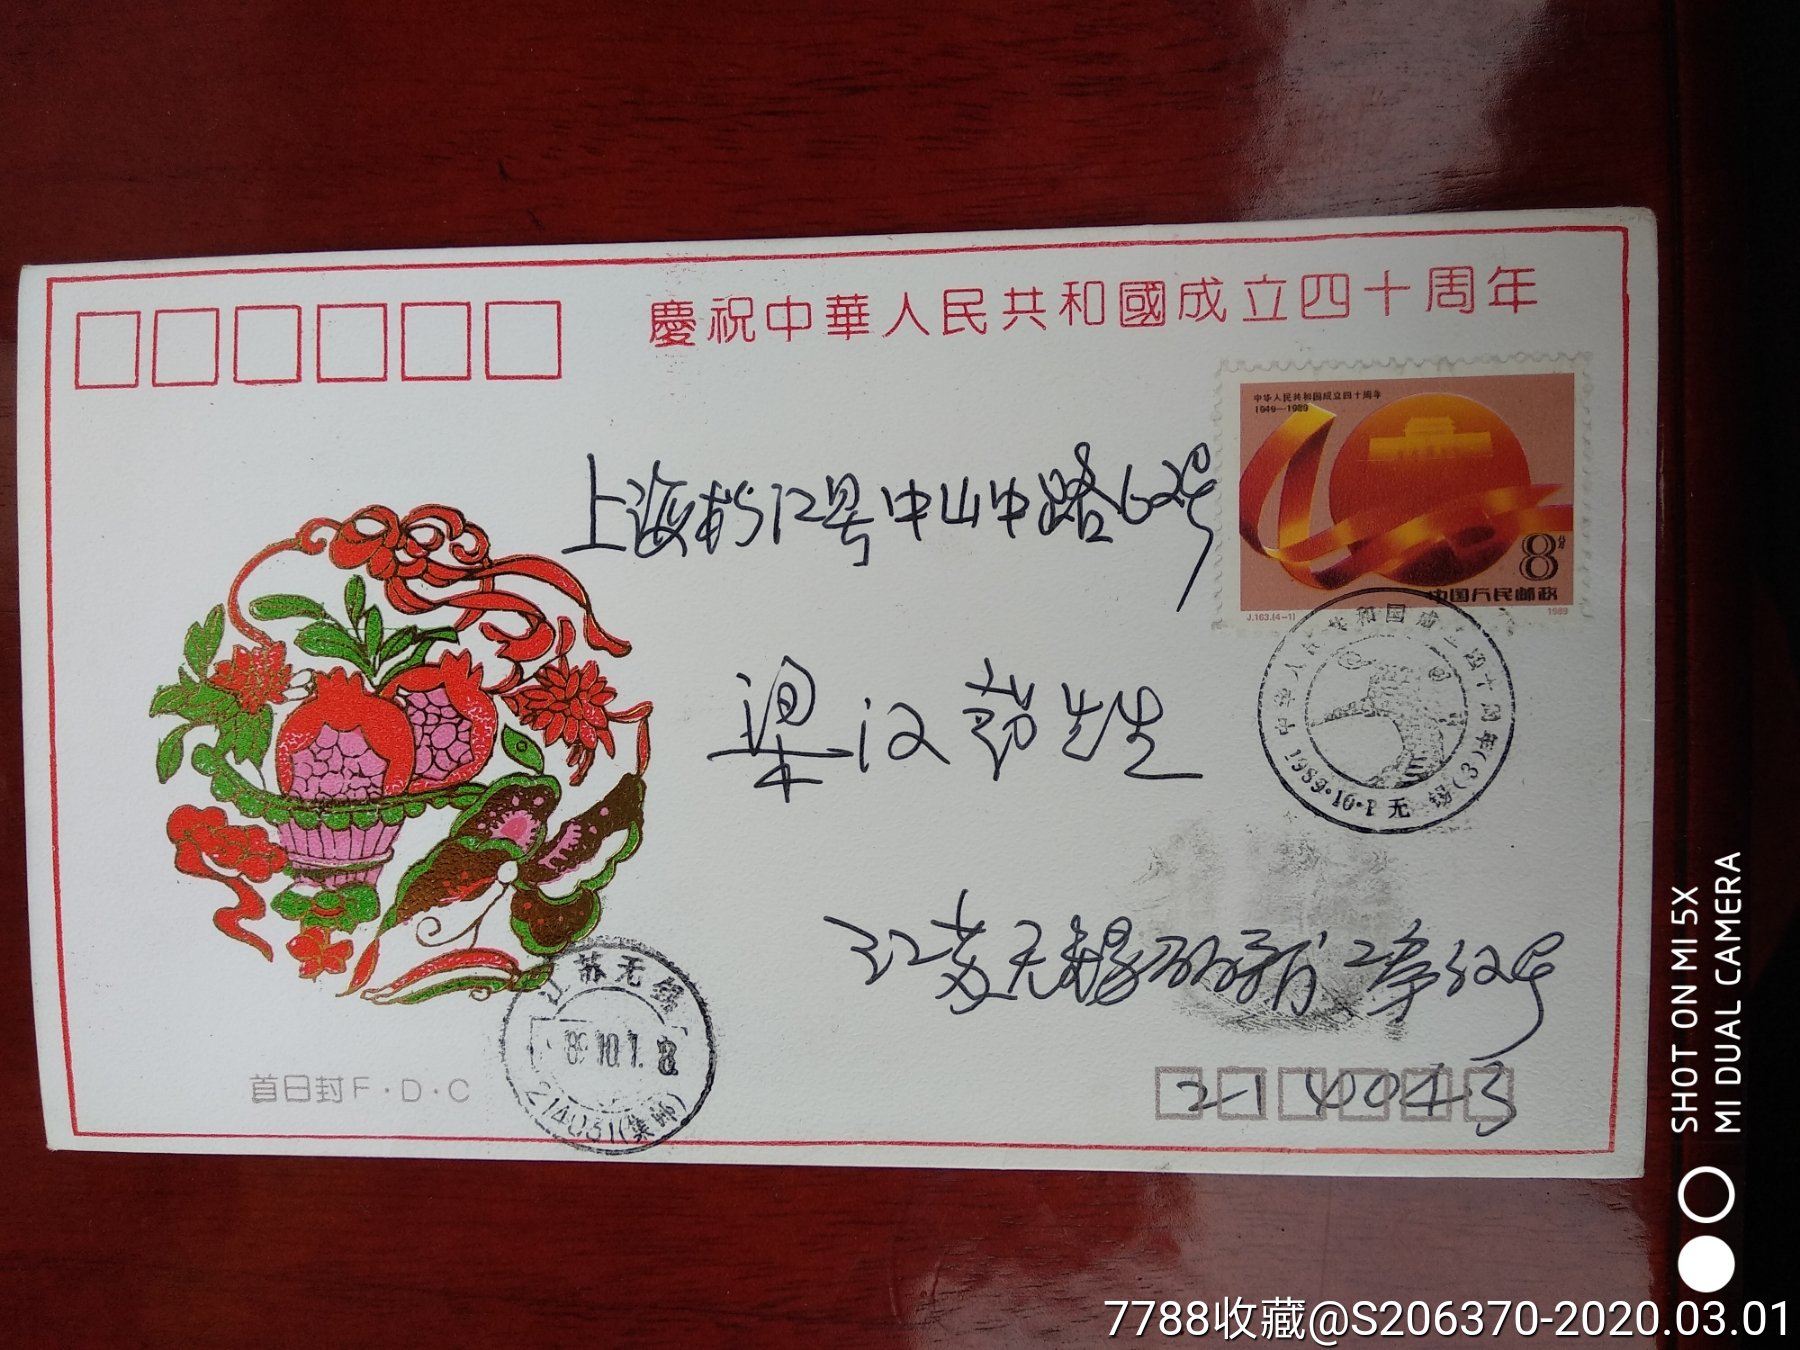 慶祝中華人民共和國成立四十周年
中华人民共和国成立四十周年
1949—1989
8分
中国人民邮政
J.163.(4-1)
1989
上海松江县中山中路62号
梁汉
先生
中华人民共和国成立四十周年
1989·10·1 无锡(3)
江苏无锡
号
214043
首日封F·D·C
江苏无锡
89.10.1.8
214031(集邮)
SHOT ON MI 5X
MI DUAL CAMERA
7788收藏@S206370-2020.03.01